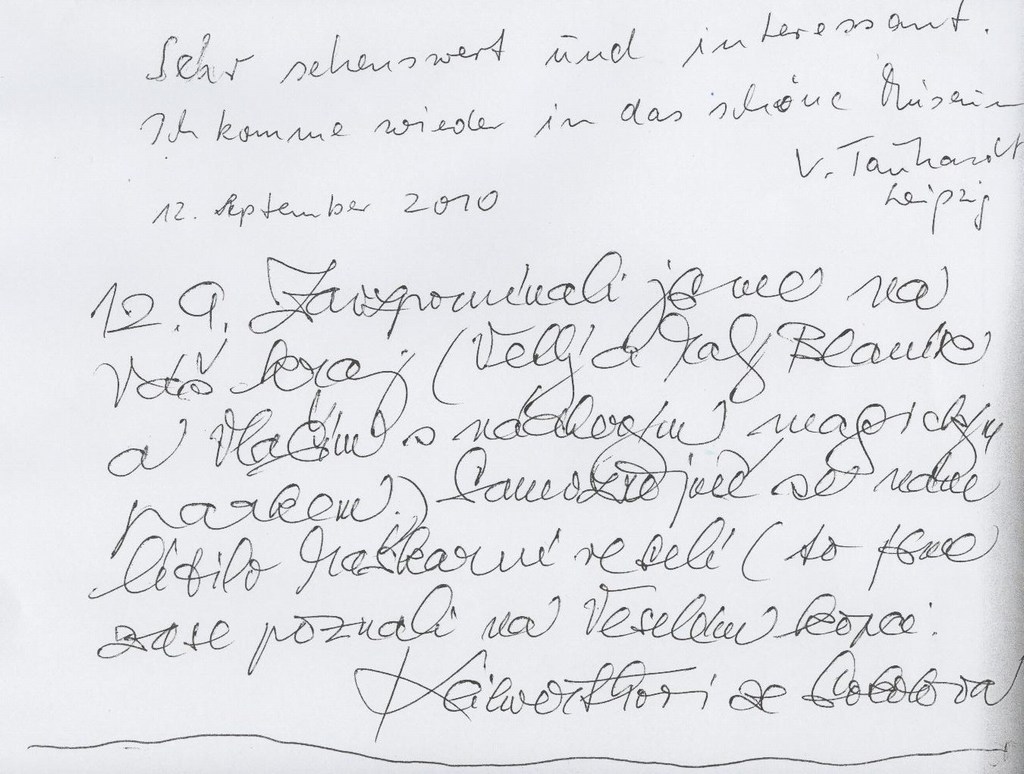 Sehr sehenswert und interessant.
Ich komme wieder in das schöne Museum
V. Tauhardt
Leipzig
12. September 2010
12. 9. Zavzpomínali jsme na
Váš kraj (Velký a Malý Blaník
a Vlašim s nádherným magickým
parkem.) Samozřejmě se nám
líbilo Maškarní veselí (to jsme
zase poznali na Veselém kopci.
ze Sokolova